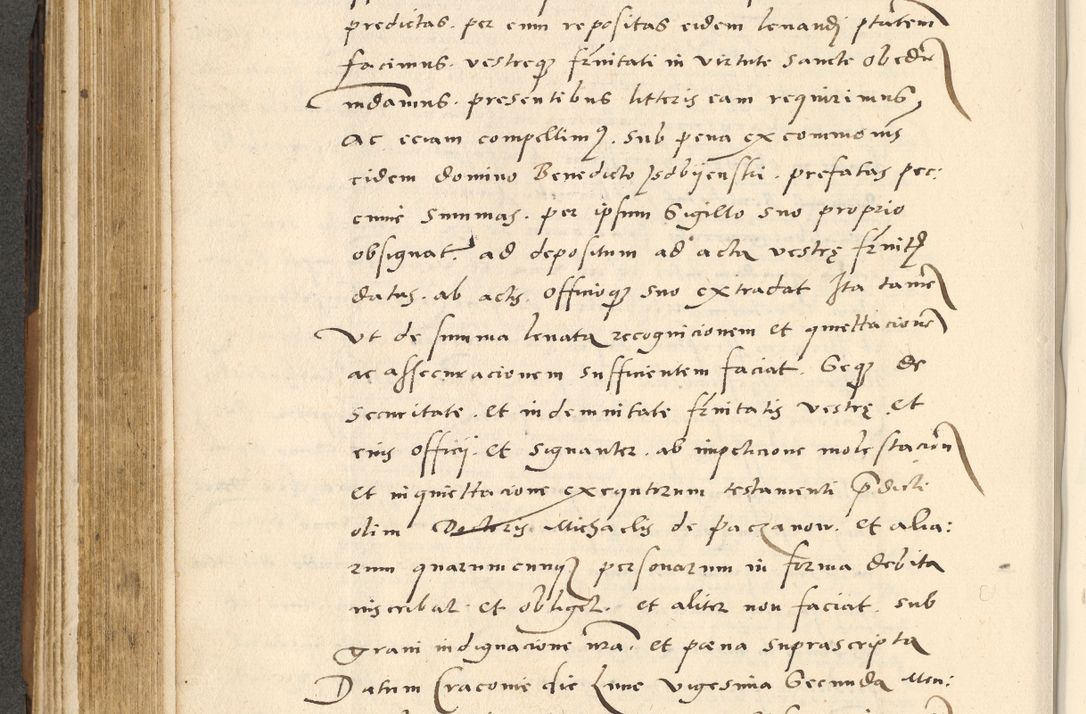 predictas. per eum repositas eidem levandj ptatem
facimus. vestreqꝫ frnitati in virtute sancte obedie
mdamus. presentibus litteris eam requirimus,
Ac eciam compellimꝰ. sub pena excommonis
eidem domino Benedicto Jsdbijenskii. prefatas pec:
cunie summas. per ipsum sigillo suo proprio
obsignat. ad depositum ad acta vestrę frnitꝭ
datas. ab actis. officioqꝫ suo extradat Ita tame
Vt de summa levata recognicionem et quiettacione
ac assecuracionem sufficientem faciat. Seqꝫ de
securitate. et indemnitate frnitatis vestrę et
eius officij. et signanter. ab impeticione molestacion
et inquiettacione exequtorum testamenti p̄dicti
olim Doctoris Michaelis de Paczanow. et alia:
rum quarumcunqꝫ personarum in forma debita
inscribat et obliget. et aliter non faciat. sub
gravi indignacione nra. et pœna suprascripta
Datum Cracovie die Lune vigesima Secunda Men: